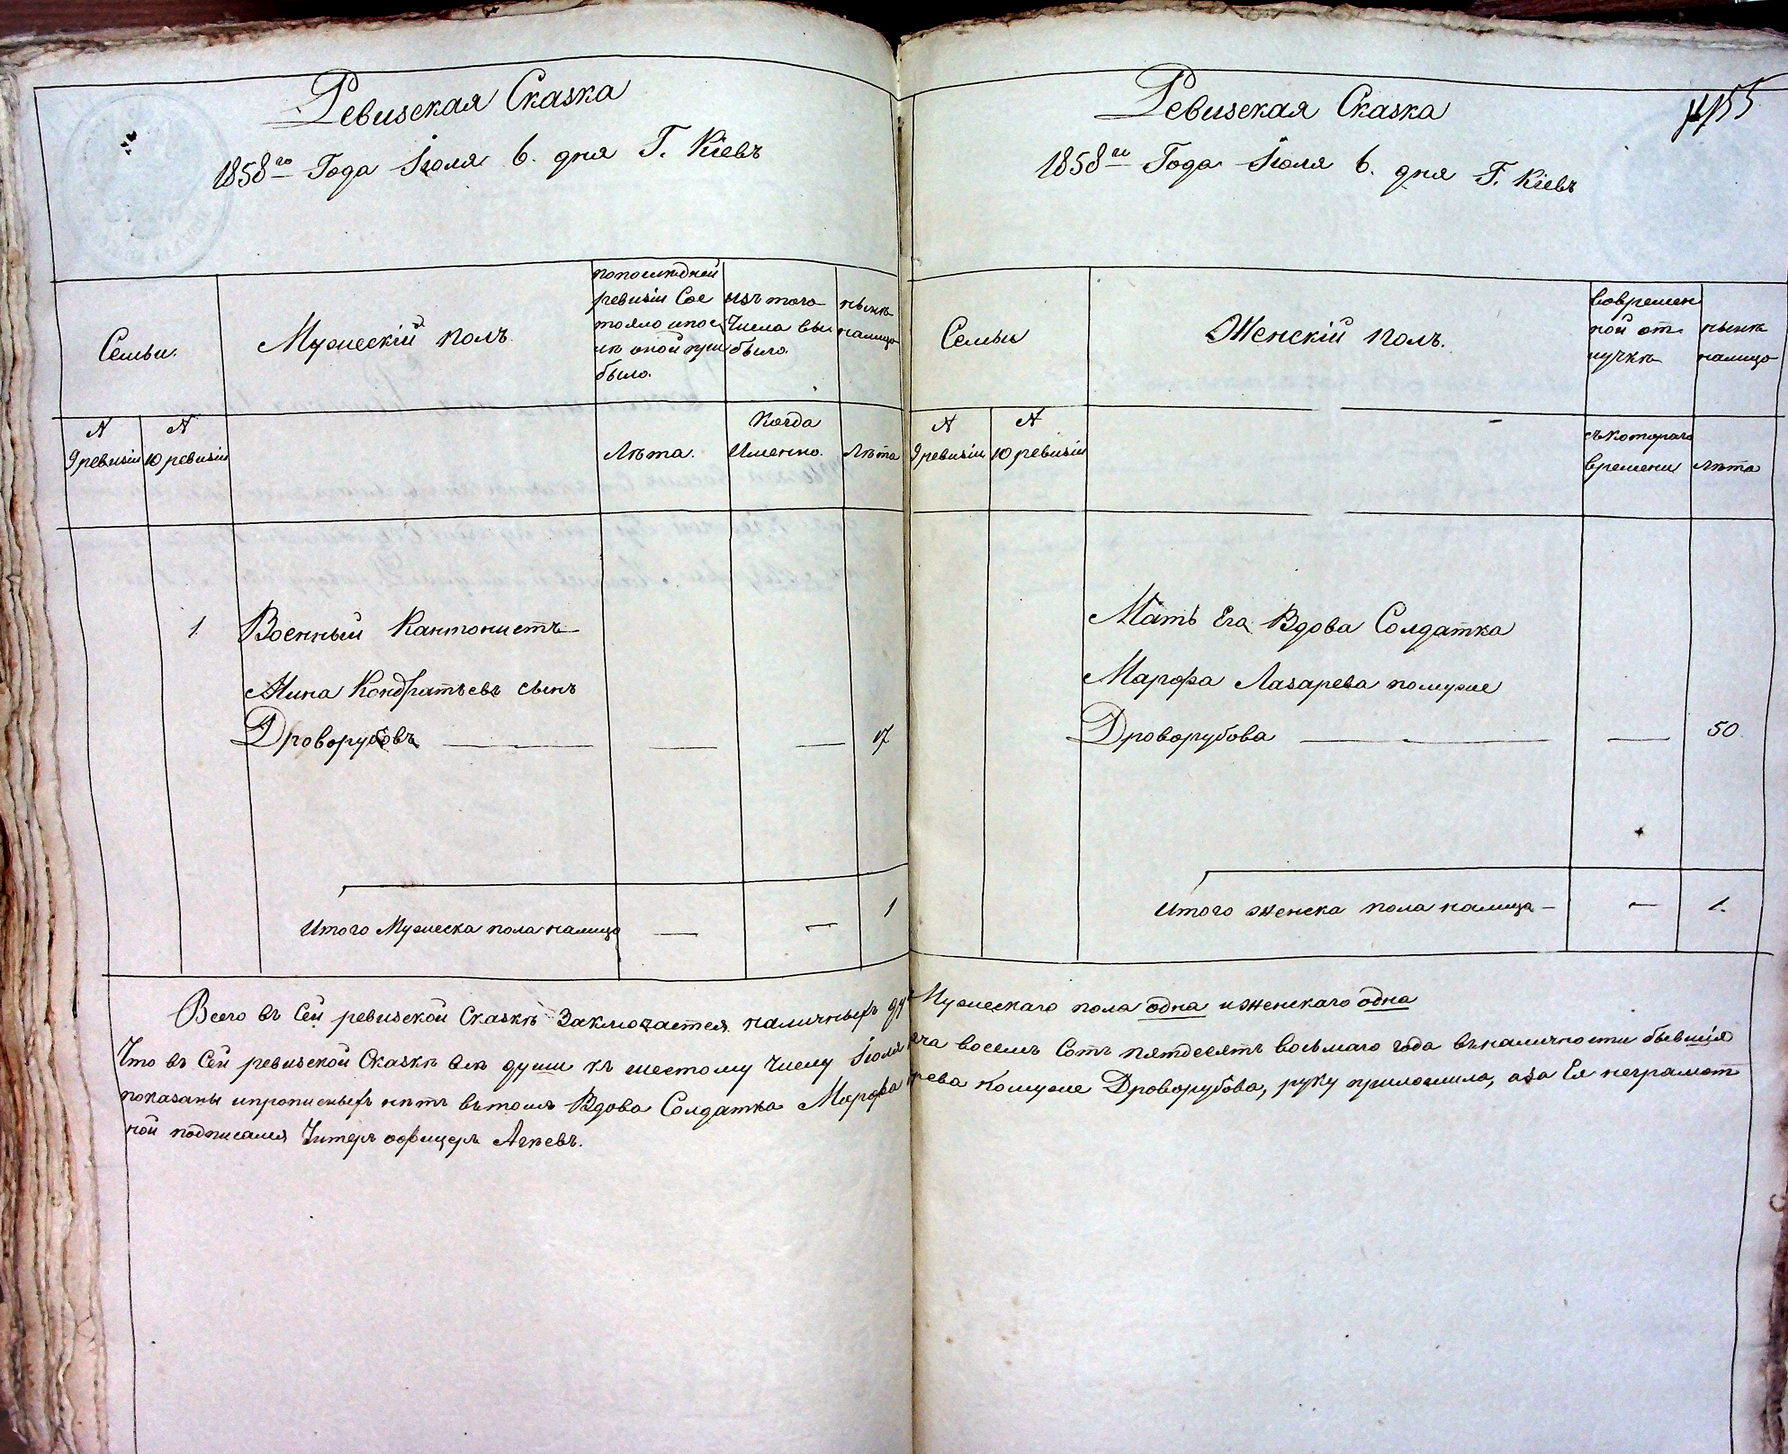 Ревизская Сказка
1858го Года Іюля 6. дня Г. Кіевъ
Семьи.
Мужескій полъ.
попоследней
ревизіи Сос
тояло ипос
лѣ оной при
было.
изъ того
Числа вы
было.
нынѣ
налицо
№
9 ревизіи
№
10 ревизіи
Лѣта.
Когда
Именно.
Лѣта
1. Военный Кантонистъ
Кондратьевъ сынъ
Дроворубовъ 17
Итого Мужеска пола налицо 1
Ревизская Сказка
155
1858го Года Іюля 6. дня Г. Кіевъ
Семьи
Женскій полъ.
вовремен
ной от
лучкѣ
нынѣ
налицо
№
9 ревизіи
№
10 ревизіи
съкотораго
времени
лѣта
Мать Его Вдова Солдатка
Марфа Лазарева помуже
Дроворубова 50.
Итого женска пола налицо 1.
Всего въ Сей ревизской Сказкѣ Заключается наличныхъ Мужескаго пола одна иженскаго одна
Что въ Сей ревизской Сказкѣ всѣ души къ шестому числу Іюля восемь Сотъ пятдесятъ восьмаго года въналичности бывшія
показаны ипрописныхъ нѣтъ вътомъ Вдова Солдатка Марфа помуже Дроворубова, руку приложила, аза Ея неграмот
ной подписался Унтеръ офицеръ